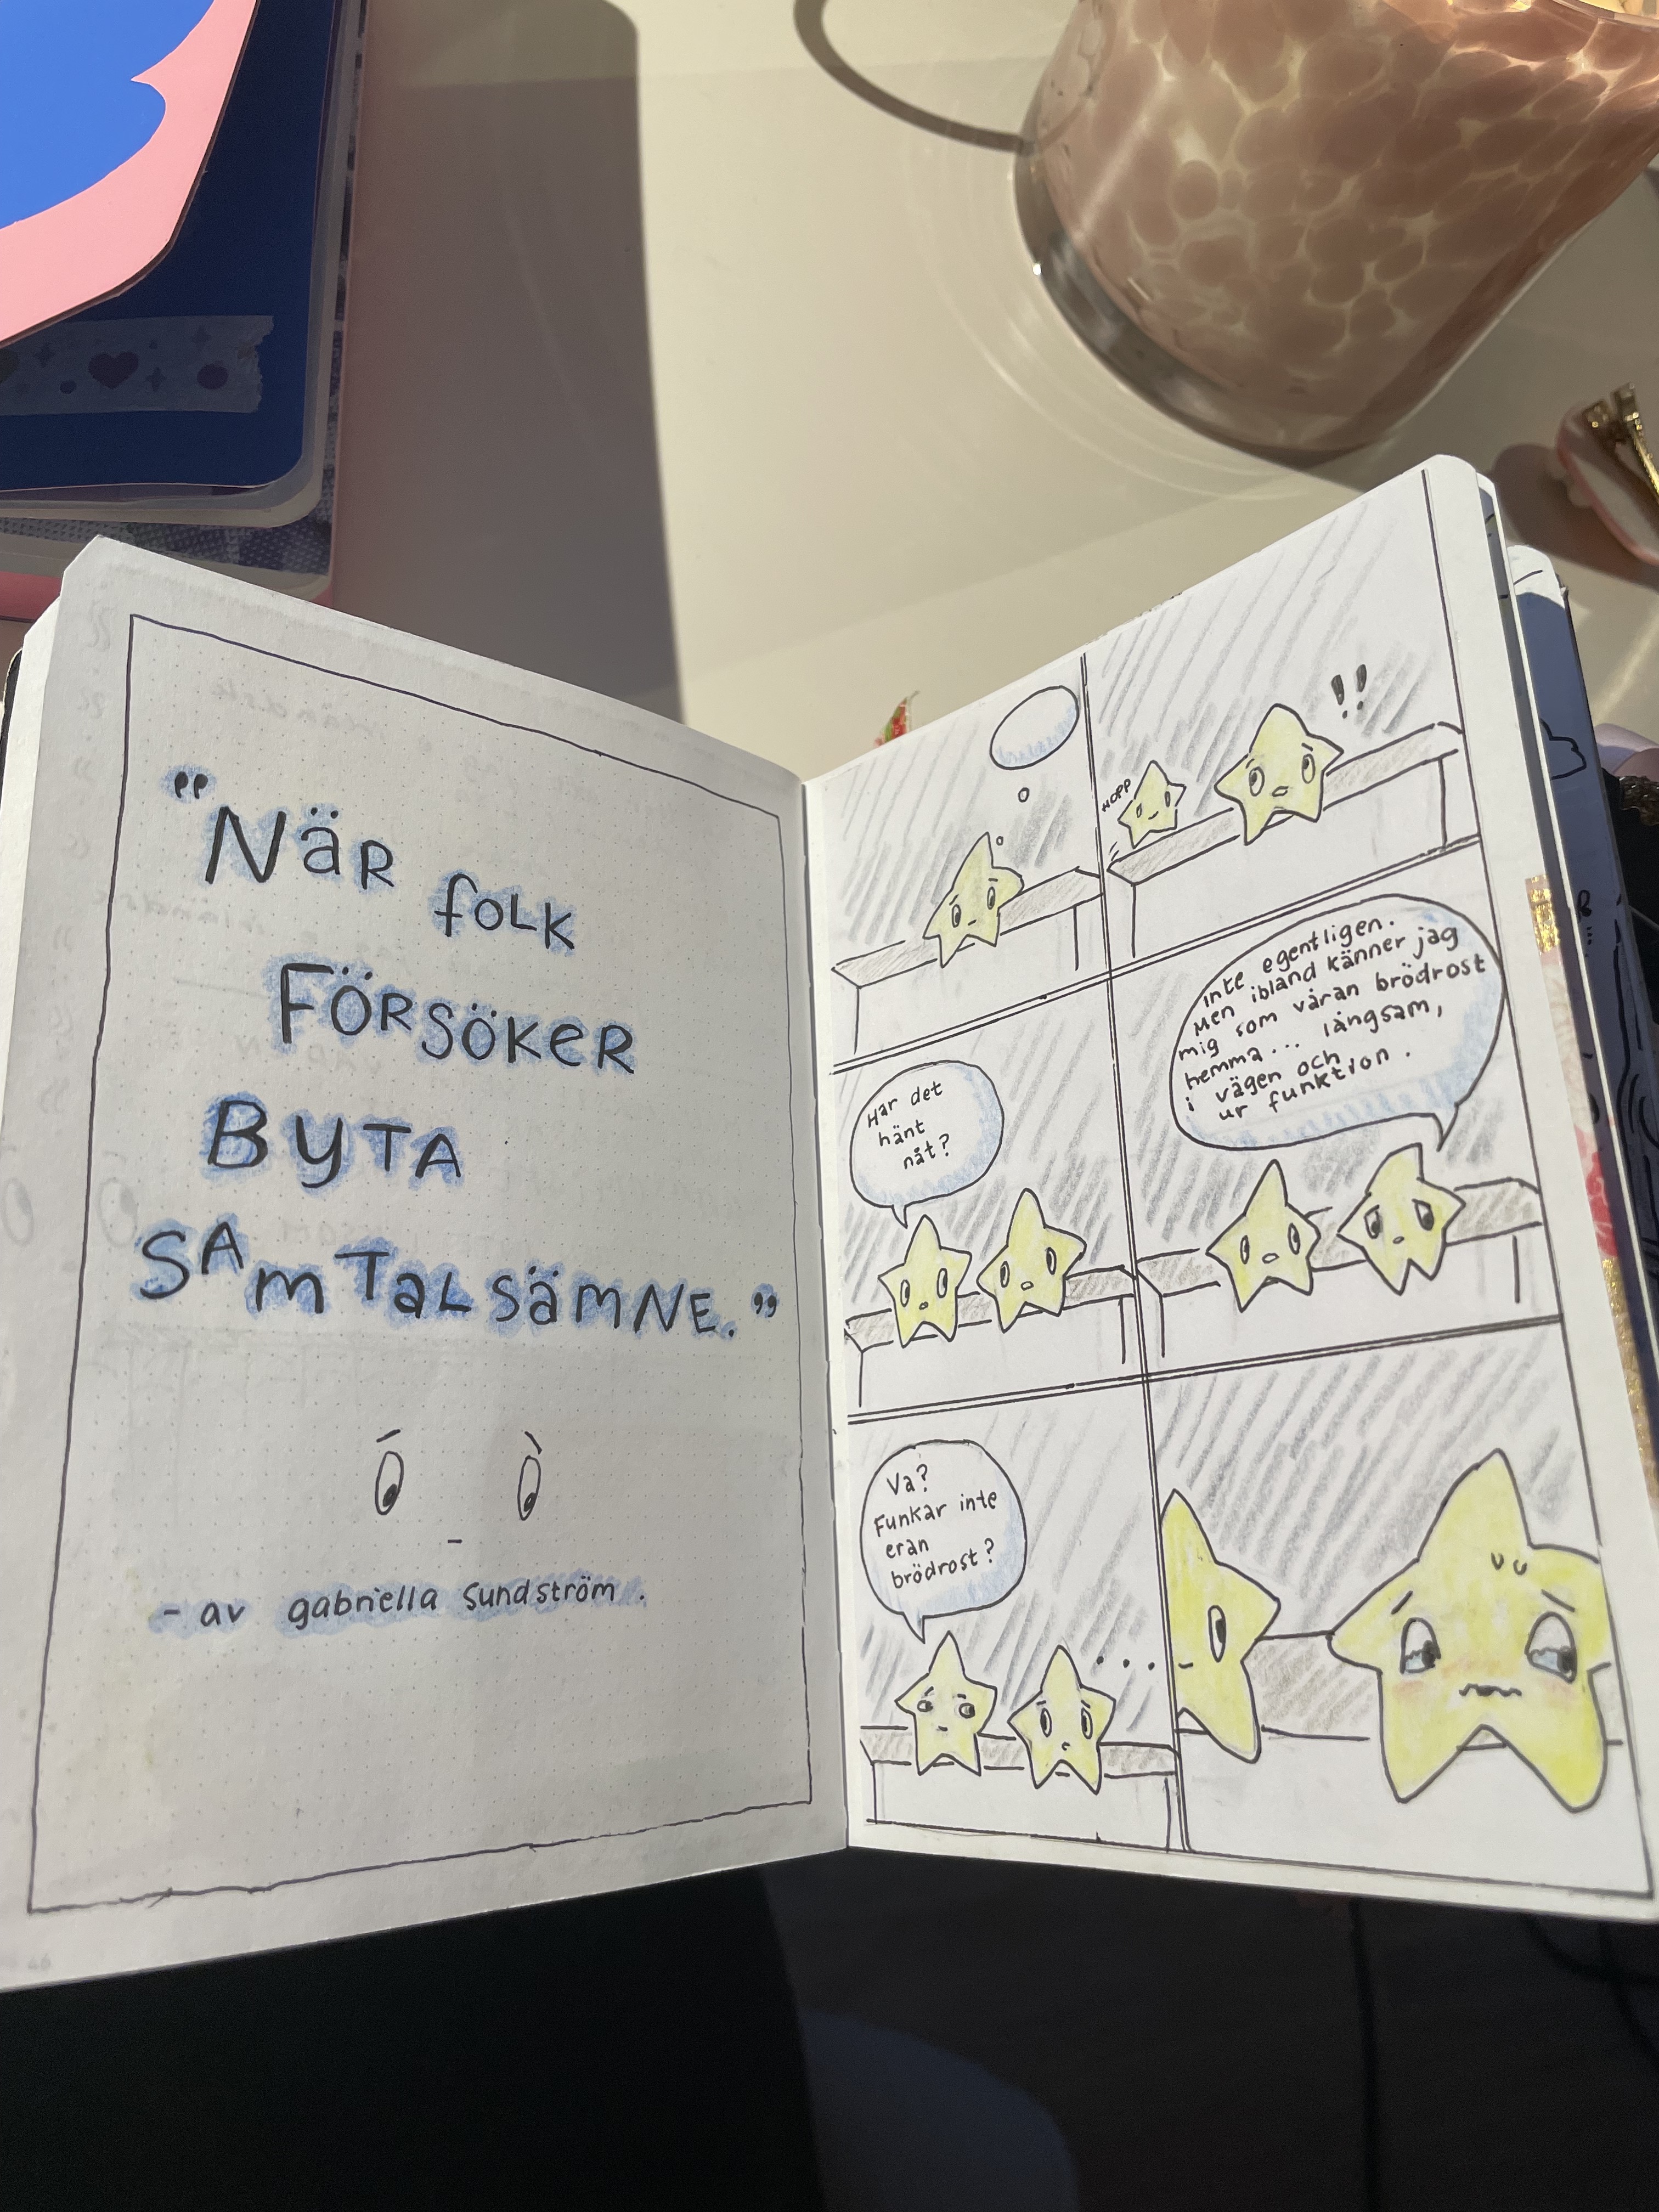 "När folk
försöker
byta
samtalsämne."
- av gabriella sundström.
HOPP
!!
Har det
hänt
nåt?
inte egentligen.
Men ibland känner jag
mig som våran brödrost
hemma... långsam,
i vägen och
ur funktion.
Va?
Funkar inte
eran
brödrost?
...